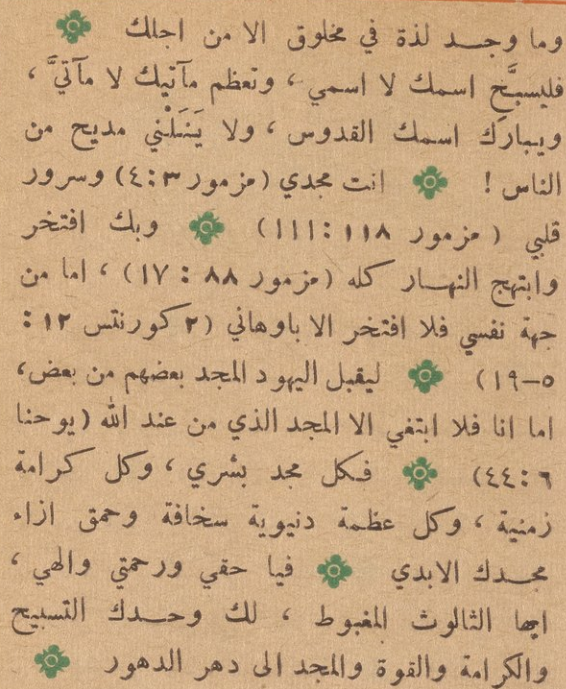 وما وجد لذة في مخلوق الا من اجلك
فليسبَّح اسمك لا اسمي، وتعظم مآتيك لا مآتيَّ،
ويبارَك اسمك القدوس، ولا يَنَلْني مديح من
الناس! انت مجدي (مزمور ٣:٤) وسرور
قلبي (مزمور ١١٨:١١١) وبك افتخر
وابتهج النهار كله (مزمور ٨٨ : ١٧)، اما من
جهة نفسي فلا افتخر الا باوهاني (٢ كورنتس ١٢ :
٥–١٩) ليقبل اليهود المجد بعضهم من بعض،
اما انا فلا ابتغي الا المجد الذي من عند الله (يوحنا
٦:٤٤) فكل مجد بشري، وكل كرامة
زمنية، وكل عظمة دنيوية سخافة وحمق ازاء
مجدك الابدي فيا حقي ورحمتي والهي،
ايها الثالوث المغبوط، لك وحدك التسبيح
والكرامة والقوة والمجد الى دهر الدهور